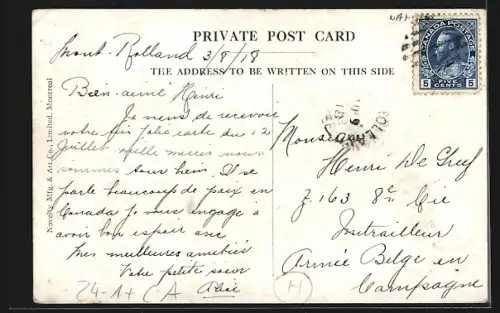 PRIVATE POST CARD
THE ADDRESS TO BE WRITTEN ON THIS SIDE
Novelty Mfg. & Art Co., Limited, Montreal
CANADA POSTAGE
5 CENTS 5
Mont-Rolland 3/8/18
Bien-aimé Henri
Je viens de recevoir
votre jolie carte du 12
Juillet mille mercis nous
sommes tous bien. Il se
parle beaucoup de paix en
Canada je vous engage à
avoir bon espoir avec
mes meilleures amitiés
Votre petite soeur
Alice
Monsieur
Henri De
Z. 163 8e Cie
Mitrailleur
Armée Belge en
Campagne
24-1+ CA
H